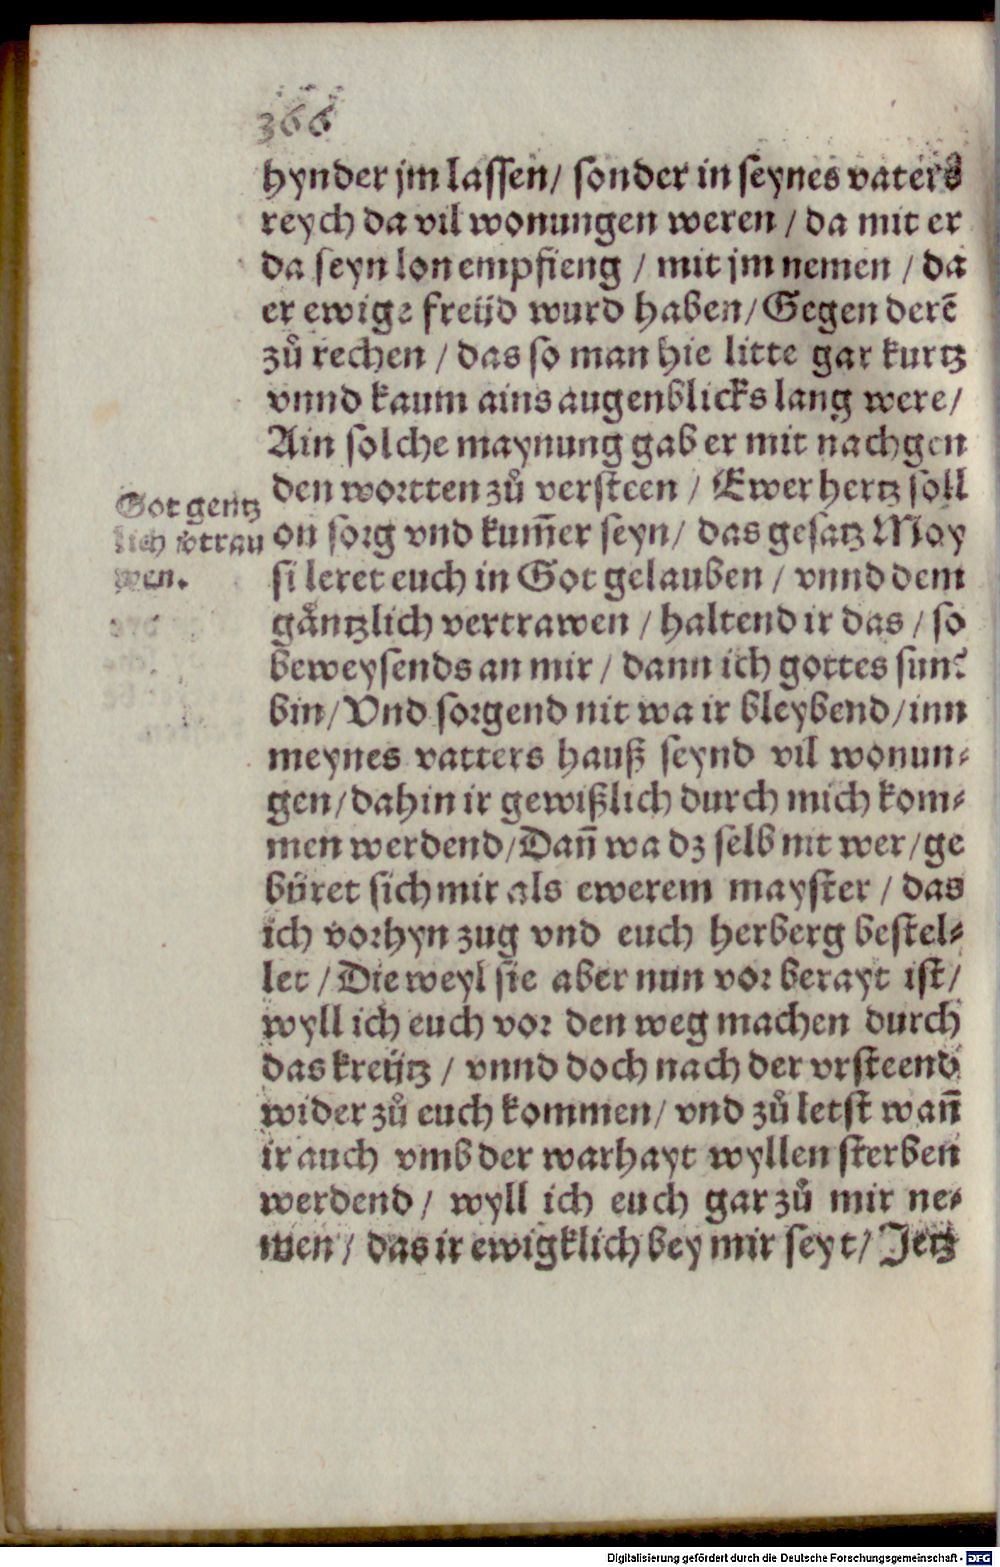 366
hynder jm lassen/ sonder in seynes vaters
reych da vil wonungen weren / da mit er
da seyn lon empfieng / mit jm nemen / da
er ewige freüd wurd haben/ Gegen derē
zů rechen / das so man hie litte gar kurtz
vnnd kaum ains augenblicks lang were/
Ain solche maynung gab er mit nachgen
den wortten zů versteen / Ewer hertz soll
on sorg vnd kum̄er seyn/ das gesatz Moy
si leret euch in Got gelauben / vnnd dem
gäntzlich vertrawen / haltend ir das / so
beweysends an mir / dann ich gottes sun
bin/ Vnd sorgend nit wa ir bleybend/ inn
meynes vatters hauß seynd vil wonun-
gen/ dahin ir gewißlich durch mich kom-
men werdend/ Dan̄ wa dz selb nit wer/ ge
büret sich mir als ewerem mayster / das
ich vorhyn zug vnd euch herberg bestel-
let / Die weyl sie aber nun vor berayt ist/
wyll ich euch vor den weg machen durch
das kreütz / vnnd doch nach der vrsteend
wider zů euch kommen/ vnd zů letst wan̄
ir auch vmb der warhayt wyllen sterben
werdend / wyll ich euch gar zů mir ne-
men / das ir ewigklich bey mir seyt/ Jetz
Got gentz
lich v̄trau
wen.
Digitalisierung gefördert durch die Deutsche Forschungsgemeinschaft - DFG